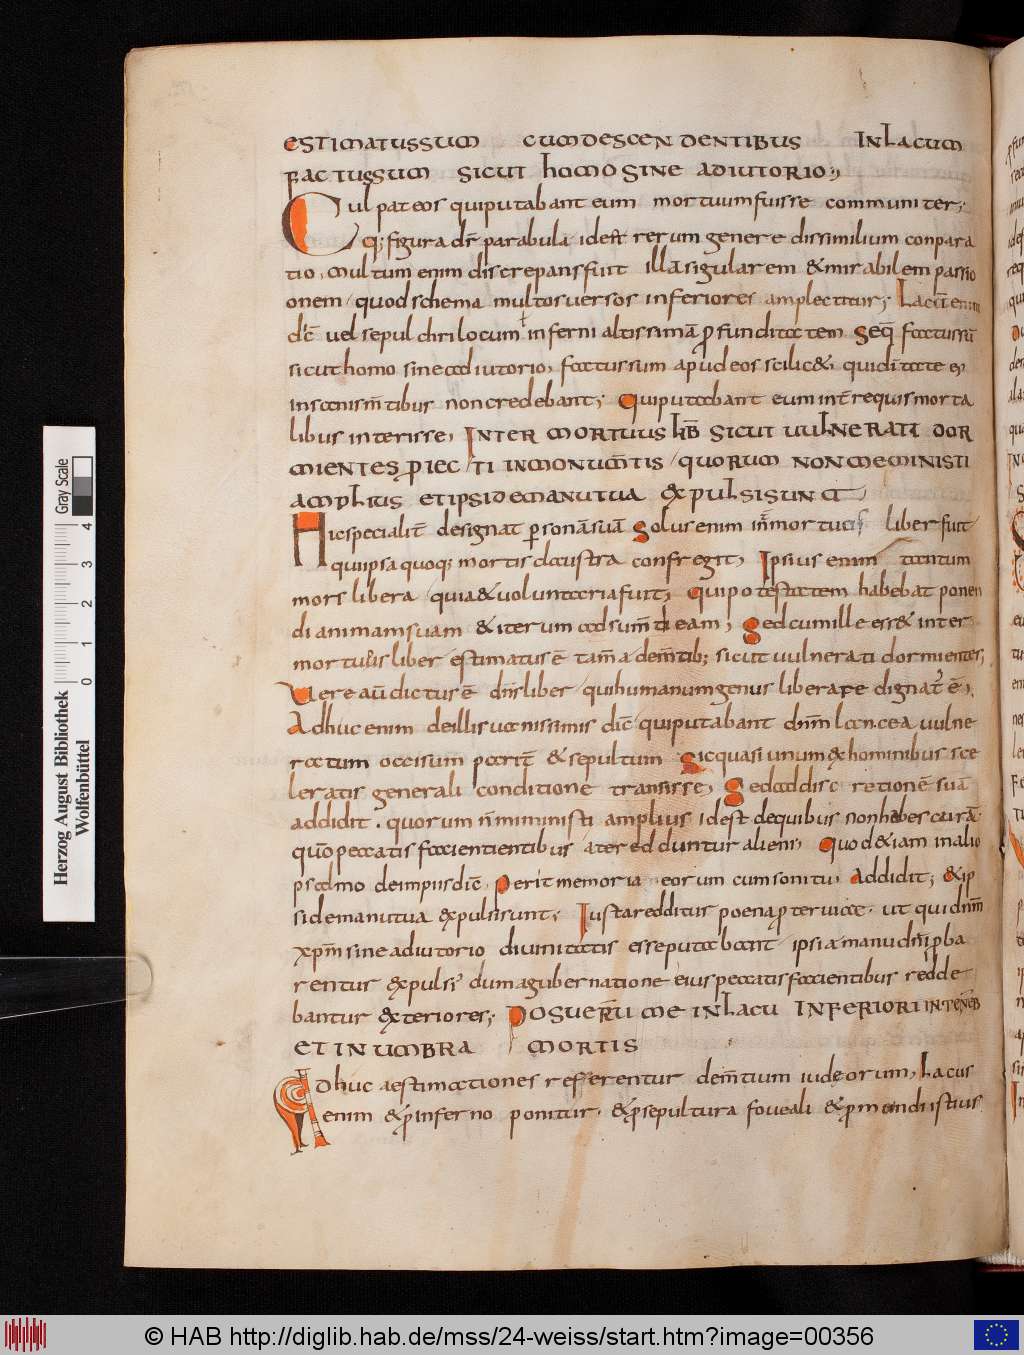 ESTIMATUSSUM CUMDESCENDENTIBUS INLACUM
FACTUSSUM SICUT HOMOSINE ADIUTORIO;
Culpat eos quiputabant eum mortuumfuisse communiter;
Q; figura dr̄ parabula idest rerum genere dissimilium conpara
tio, multum enim discrepansfuit illāsigularem & mirabilem passio
onem quodschema multosversos inferiores amplectitur; Lacū enim
dic̄ vel sepulchri locum inferni altissimā profunditatem Seq̄ factussū
sicuthomo sineadiutorio, factussum apudeosscilic&, quidıtate
insanism̄tibus noncredebant; Quiputabant eum int̄requismorta
libus interisse, INTER MORTUUS LIB̄ SICUT VULNERATI DOR
MIENTES PROIECTI INMONUM̄TIS QUORUM NONMEMINISTI
AMPLIUS ETIPSIDEMANUTUA EXPULSISUNT
Hicspecialit̄ designat personāsuā Solus enim int̄ mortuos liberfuit
quiipsaquoq; mortisclaustra confregit, Ipsius enim tantum
mors libera quia&voluntariafuit; Quipotestatem habebat ponen
di animamsuam &iterum adsum̄di eam; Sedcumille ess& inter
mortuus liber estimatus ē tam̄ a dem̄tib; sicut vulnerati dormientes,
Vere aū dictus ē dn̄s liber quihumanumgenus liberare dignat; ē,
Adhuc enim deillisvanissimis dic̄ quiputabant dn̄m lancea vulne
ratum occisum pariт̄ &sepultum Sicquasi unum exhominibus sce
leratis generali conditione transisse, Sedaddiscretionē suā
addidit. quorum n̄ministi amplius idest dequibus nonhabes curā
quopeccatis facientientibus atereddunturalieni, Quod&iam inalio
psalmo deimpiisdic̄. Perit memoria eorum cumsonitu, Addidit; &ip
sidemanutua expulsisunt; Iustaredditur poenaproterviae. ut quidn̄m
xp̄m sineadiutorio divinitatis esseputabant ipsi amanu dn̄i proba
rentur expulsi dumagubernatione eiuspeccatisfacientibus redde
bantur exteriores; POSUERŪ ME INLACU INFERIORI INTENEB̄
ETINUMBRA MORTIS
Adhuc aestimationes referentur dem̄tium iudeorum, Lacus
enim &proinferno ponitur, &prosepultura foveali &pro
Herzog August Bibliothek
Wolfenbüttel
0 1 2 3 4
Gray Scale
© HAB http://diglib.hab.de/mss/24-weiss/start.htm?image=00356